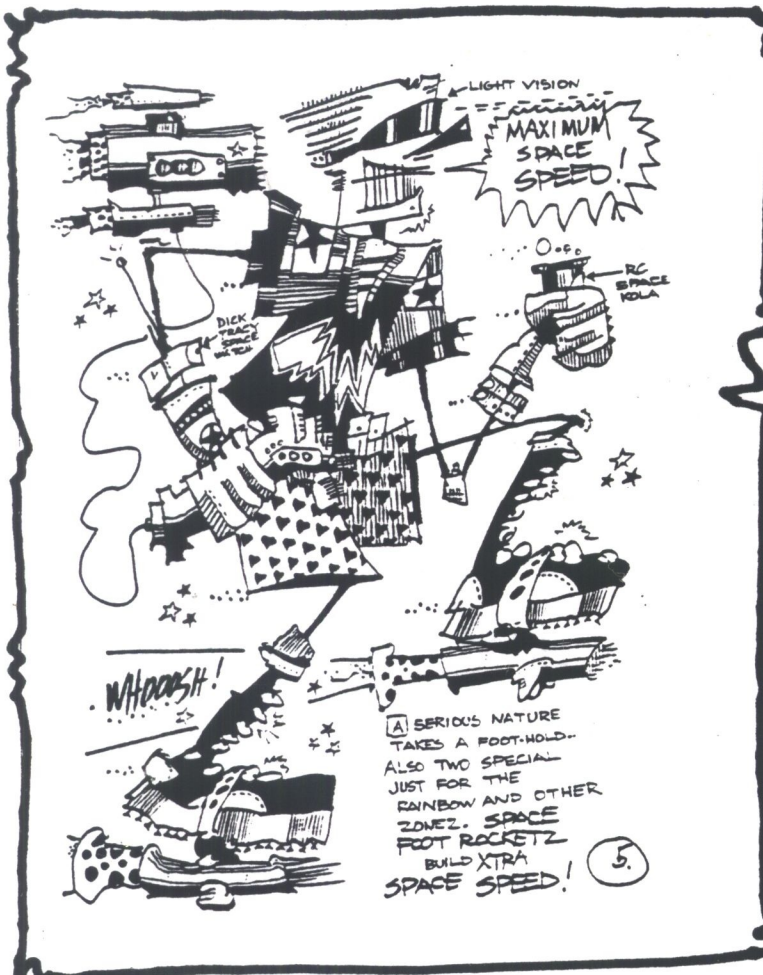 LIGHT VISION
MAXIMUM
SPACE
SPEED!
RC
SPACE
KOLA
DICK
TRACY
SPACE
WATCH
WHOOOSH!
A SERIOUS NATURE
TAKES A FOOT-HOLD..
ALSO TWO SPECIAL
JUST FOR THE
RAINBOW AND OTHER
ZONEZ. SPACE
FOOT ROCKETZ
BUILD XTRA
SPACE SPEED!
5.